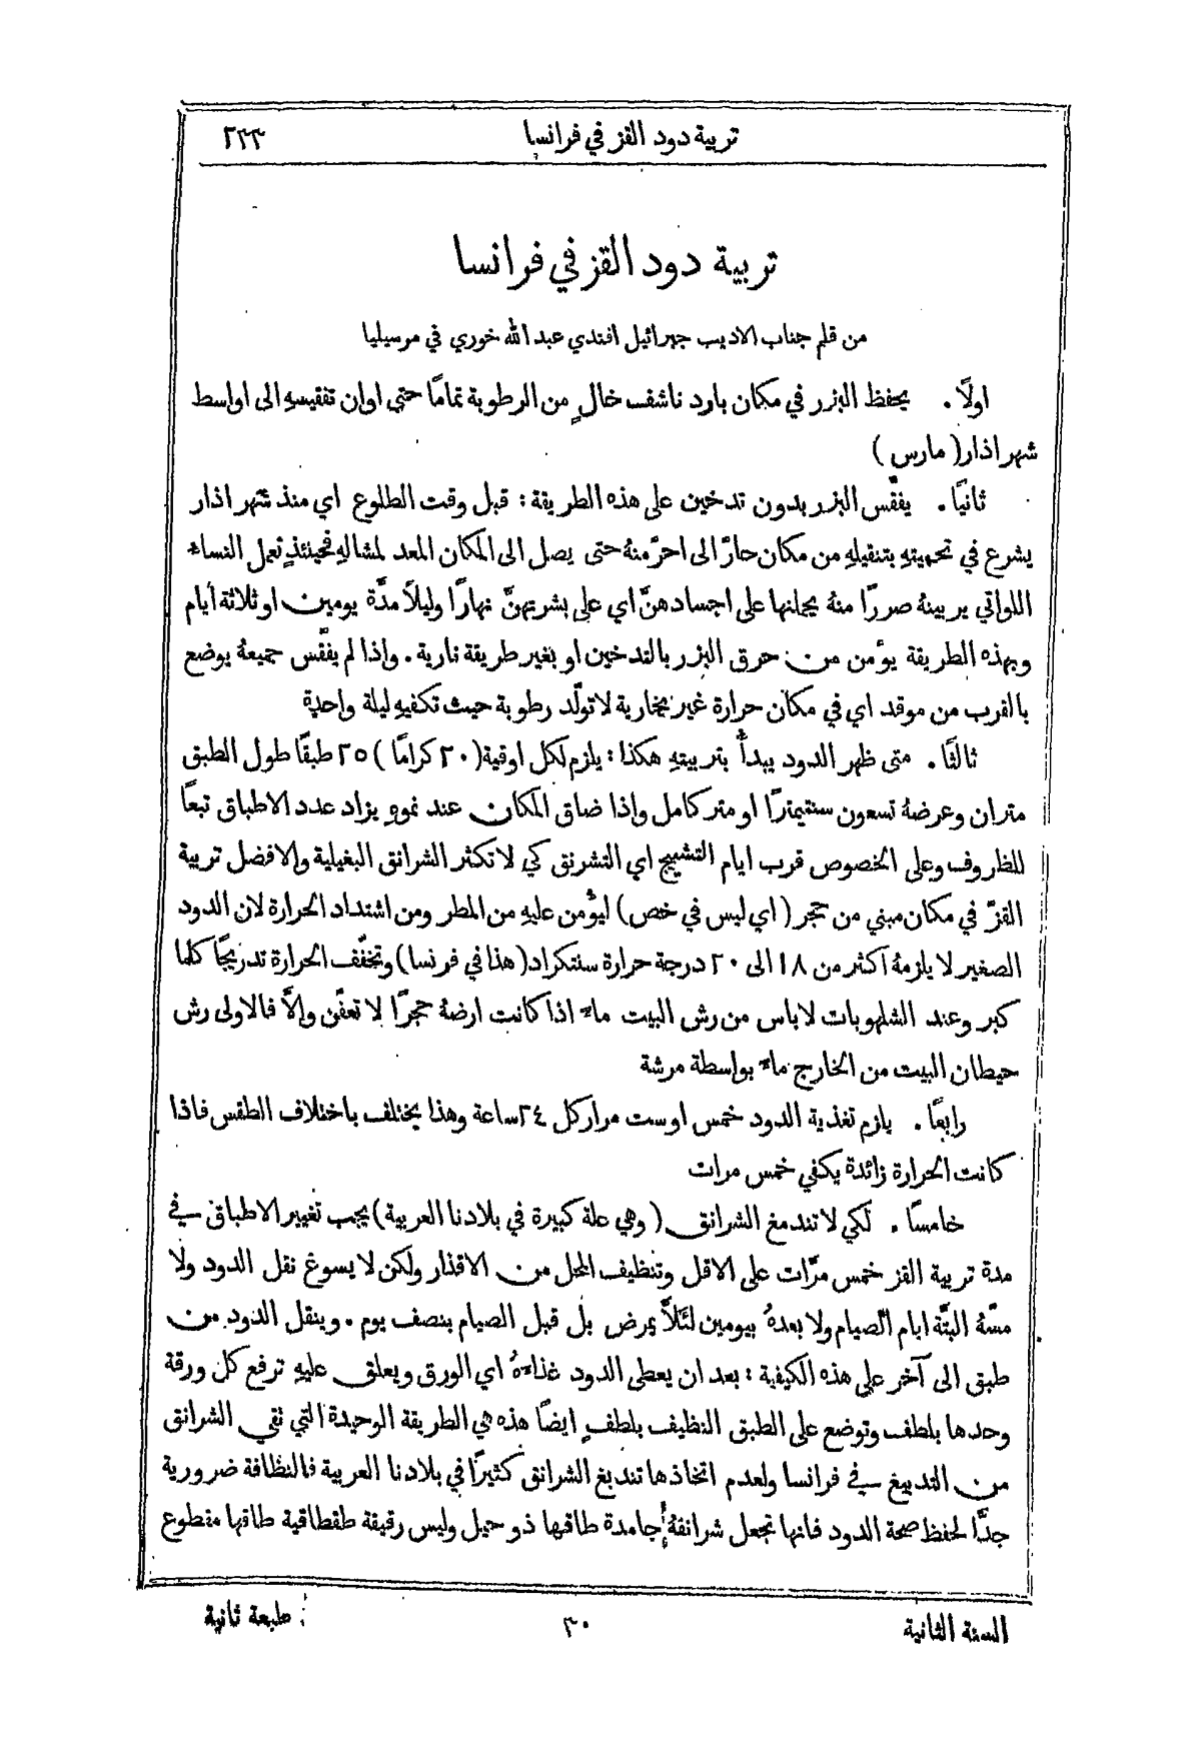 تربية دود القز في فرانسا ٢٣٣
تربية دود القز في فرانسا
من قلم جناب الاديب جبرائيل افندي عبد الله خوري في مرسيليا
اولًا . يحفظ البزر في مكان بارد ناشف خالٍ من الرطوبة تمامًا حتى اوان تفقيسهِ الى اواسط
شهر اذار (مارس)
ثانيًا . يفقّس البزر بدون تدخين على هذه الطريقة : قبل وقت الطلوع اي منذ شهر اذار
يشرع في تحميتهِ بتنقيلهِ من مكان حارّ الى احرّ منهُ حتى يصل الى المكان المعد لمثالهِ فحينئذٍ تعمل النساء
اللواتي يربينهُ صررًا منهُ يحملنها على اجسادهنَّ اي على بشرتهنَّ نهارًا وليلاً مدَّة يومين او ثلاثة أيام
وبهذه الطريقة يؤمن من حرق البزر بالتدخين او بغير طريقة نارية . واذا لم يفقّس جميعهُ يوضع
بالقرب من موقد اي في مكان حرارة غير بخارية لا تولّد رطوبة حيث تكفيهِ ليلة واحدة
ثالثًا . متى ظهر الدود يبدأُ بتربيتهِ هكذا : يلزم لكل اوقية (٣٠ كرامًا) ٢٥ طبقًا طول الطبق
متران وعرضهُ تسعون سنتيمترًا او متر كامل واذا ضاق المكان عند نموهِ يزاد عدد الاطباق تبعًا
للظروف وعلى الخصوص قرب ايام التشييج اي التشرنق كي لا تكثر الشرانق البغيلية والافضل تربية
القزّ في مكان مبني من حجر (اي ليس في خص) ليؤمن عليهِ من المطر ومن اشتداد الحرارة لان الدود
الصغير لا يلزمهُ اكثر من ١٨ الى ٢٠ درجة حرارة سنتكراد (هذا في فرنسا) وتخفّف الحرارة تدريجًا كلما
كبر وعند الشلهوبات لا باس من رش البيت ماءً اذا كانت ارضهُ حجرًا لا تعفّن والاَّ فالاولى رش
حيطان البيت من الخارج ماءً بواسطة مرشة
رابعًا . يلزم تغذية الدود خمس او ست مرار كل ٢٤ ساعة وهذا يختلف باختلاف الطقس فاذا
كانت الحرارة زائدة يكفي خمس مرات
خامسًا . لكي لا تندمغ الشرانق (وهي علة كبيرة في بلادنا العربية) يجب تغيير الاطباق في
مدة تربية القز خمس مرَّات على الاقل وتنظيف المحل من الاقذار ولكن لا يسوغ نقل الدود ولا
مسّهُ البتَّة ايام الصيام ولا بعدهُ بيومين لئلاَّ يمرض بل قبل الصيام بنصف يوم . وينقل الدود من
طبق الى آخر على هذه الكيفية : بعد ان يعطى الدود غذاءهُ اي الورق ويعلق عليهِ ترفع كل ورقة
وحدها بلطف وتوضع على الطبق النظيف بلطفٍ ايضًا هذه هي الطريقة الوحيدة التي تقي الشرانق
من التدبيغ في فرانسا ولعدم اتخاذها تندبغ الشرانق كثيرًا في بلادنا العربية فالنظافة ضرورية
جدًّا لحفظ صحة الدود فانها تجعل شرانقهُ جامدة طاقها ذو حيل وليس رقيقة طقطاقية طاقها مقطوع
السنة الثانية ٣٠ طبعة ثانية